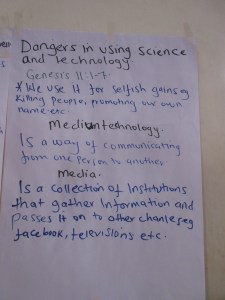 Dangers in using science
and technology.
Genesis 11:1-7.
* We use it for selfish gains eg
killing people, promoting our own
name etc.
technology.
Is a way of communicating
from one person to another
media.
Is a collection of Institutions
that gather information and
passes it on to other chanles eg
facebook, televisions etc.